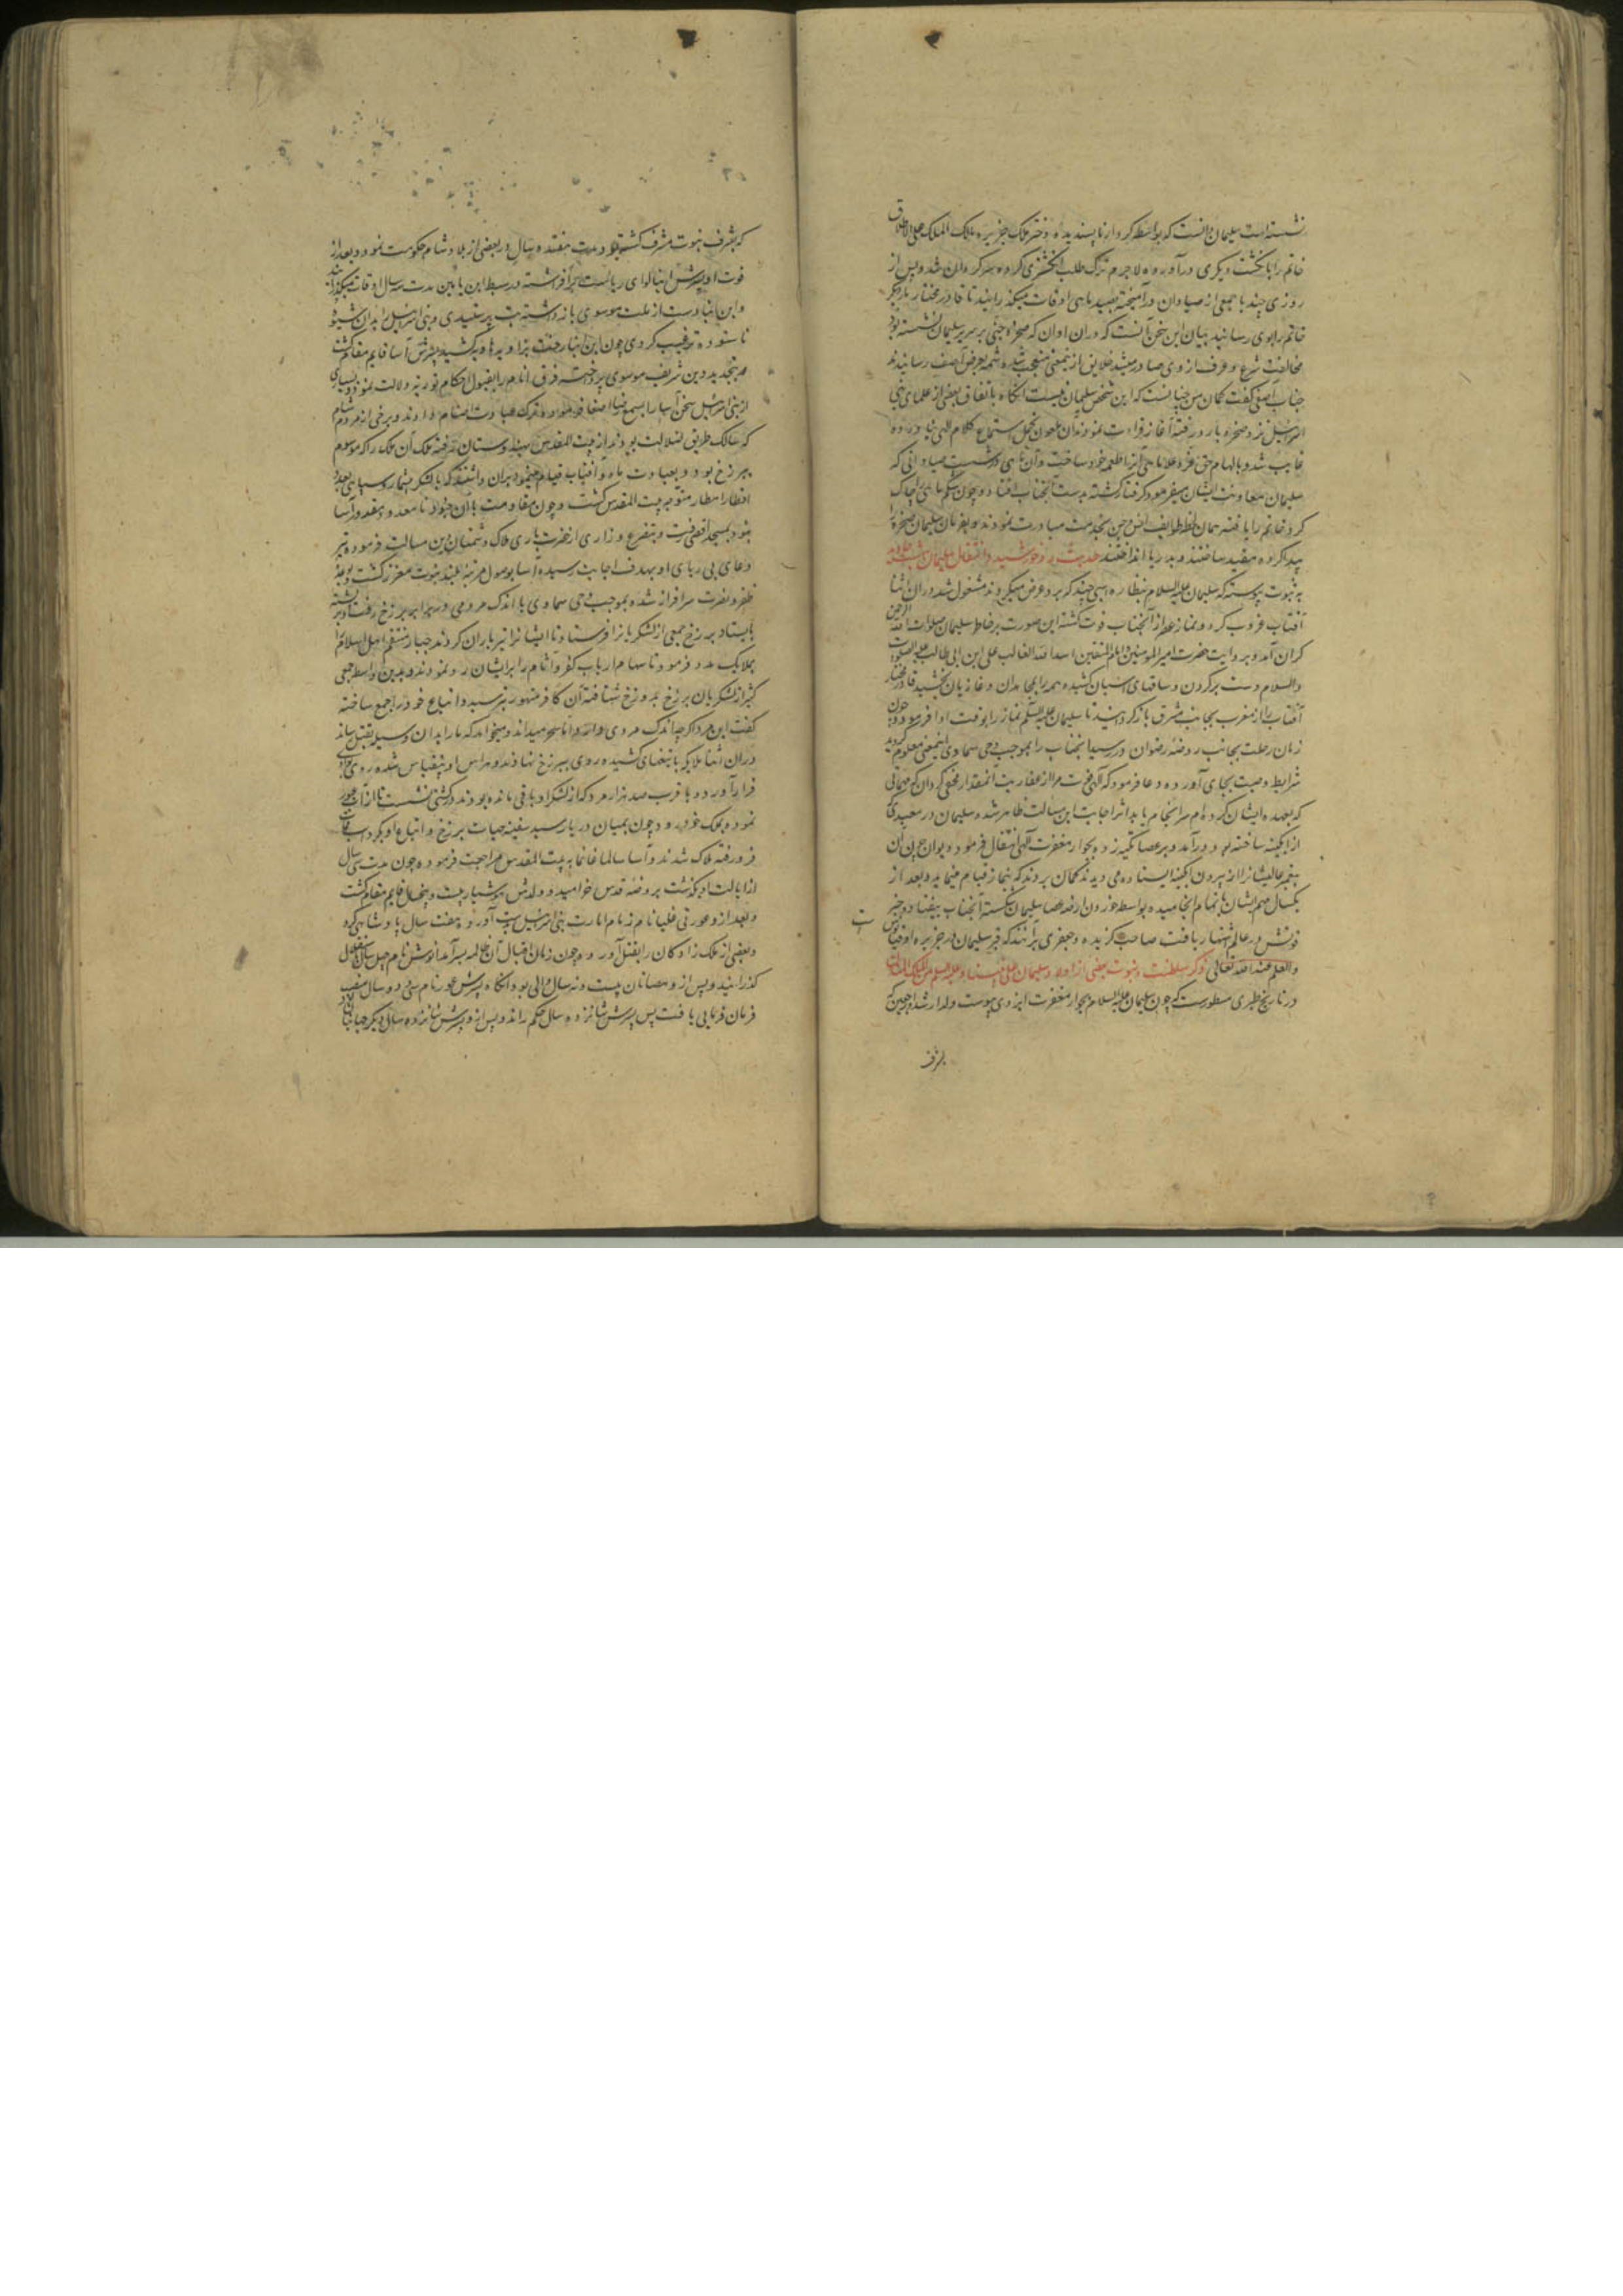 نشسته است سلیمان دانست که بواسطه کردار ناپسندیده دختر ملک جزیره مالک الملک علی الاطلاق
خاتم را بانگشت دیگری درآورده لاجرم ترک طلب انگشتری کرده سرگردان شد و پس از
روزی چند با جمعی از صیادان درآمیخته بصید ماهی اوقات میگذرانید تا قادر مختار بار دیگر
خاتم را بوی رسانید بیان این سخن آنست که در آن اوان که صخره جنی بر سریر سلیمان نشسته بود
مخالفت شرع و عرف از وی صادر میشد خلایق از این معنی متعجب شده شمه بعرض آصف رسانیدند
جناب آصفی گفت گمان من چنانست که این شخص سلیمان نیست آنگاه باتفاق بعضی از علمای بنی
اسرائیل نزد صخره مارد رفته آغاز قراءت نمودند آن ملعون تحمل استماع کلام الهی نیاورده
غایب شد و بالهام حق عز و علا ماهی آنرا طعمه خود ساخت و آن ماهی در شست صیادانی که
سلیمان معاونت ایشان میفرمود گرفتار گشته بدست آنجناب افتاد و چون شکم ماهی را چاک
کرد خاتم را یافته همان لحظه طوایف انس و جن بخدمت مبادرت نمودند و بفرمان سلیمان صخره را
پیدا کرده مقید ساختند و بدریا انداختند حدیث رد خورشید و انتقال سلیمان
به ثبوت پیوسته که سلیمان علیه السلام بنظاره اسبی چند که برو عرض میکردند مشغول شد در آن اثنا
آفتاب غروب کرد و نماز عصر از آنجناب فوت گشته این صورت بر خاطر سلیمان صلوات الله الرحمن
گران آمد و بروایت حضرت امیر المومنین و امام المتقین اسد الله الغالب علی ابن ابی طالب علیه الصلوات
والسلام دست بر گردن و ساقهای اسپان کشیده همه را بمجاهدان و غازیان بخشید قادر مختار
آفتاب را از مغرب بجانب مشرق بازگردانید تا سلیمان علیه السلام نماز را بوقت ادا فرمود و چون
زمان رحلت بجانب روضه رضوان در رسید آنجناب را بموجب وحی سماوی اینمعنی معلوم گردید
شرایط وصیت بجای آورده دعا فرمود که الهی فوت مرا از عفاریت آنمقدار مخفی گردان که مهماتی
که بعهده ایشان کرده‌ام سرانجام یابد اثر اجابت این مسالت ظاهر شده سلیمان در معبدی که
از آبگینه ساخته بود درآمد و بر عصا تکیه زده بجوار مغفرت الهی انتقال فرمود دیوان چون آن
پیغمبر عالیشانرا از بیرون آبگینه ایستاده می دیدند گمان بردند که بنماز قیام مینماید و بعد از
یکسال مهم ایشان باتمام انجامیده بواسطه خوردن ارضه عصا سلیمان شکسته آنجناب بیفتاد و خبر
فوتش در عالم اشتهار یافت صاحب گزیده و جعفری برآنند که قبر سلیمان در جزیره اوقیانوس است
والعلم عند الله تعالی ذکر سلطنت و نبوت بعضی از اولاد سلیمان علی نبینا و علیه السلم
در تاریخ طبری مسطورست که چون سلیمان علیه السلام بجوار مغفرت ایزدی پیوست ولد ارشد او رحبعم که
بشرف
که بشرف نبوت مشرف گشته بود مدت هفتده سال در بعضی از بلاد شام حکومت نمود و بعد از
فوت او پسرش ابیا لوای ریاست برافراشته در سبط ابن یامین مدت سه سال اوقات میگذرانید
و این ابیا دست از ملت موسوی باز داشته بت پرستیدی و بنی اسرائیل را بدان شیوه
ناستوده ترغیب کردی چون ابن ابیا رخت بزاویه هاویه کشید پسرش آسا قایم مقام گشت
به تجدید دین شریف موسوی پرداخته فرق انام را بقبول احکام توریه دلالت نمود و بسیاری
از بنی اسرائیل سخن آسا را بسمع رضا اصغا فرموده ترک عبادت اصنام دادند و برخی از مردم شام
که سالک طریق ضلالت بودند از بیت المقدس بهندوستان رفته ملک آن ملک را که موسوم
ببرزخ بود و بعبادت ماه و آفتاب قیام مینمود بران داشتند که با لشکر بیشمار و سپاهی بعدد
اقطار امطار متوجه بیت المقدس گشت و چون مقاومت با آن جنود نامعدود مقدور آسا
نبود بمسجد اقصی رفت و بتضرع و زاری از حضرت باری هلاک دشمنان دین مسالت فرموده تیر
دعای بی ریای او بهدف اجابت رسیده آسا بوصول مرتبه بلند نبوت معزز گشت و بوعده
ظفر و نصرت سرافراز شده بموجب وحی سماوی با اندک مردمی در برابر برزخ رفت و بر پشته
بایستاد برزخ جمعی از لشکریانرا فرستاد تا ایشانرا تیرباران کردند جبار منتقم اهل اسلام را
بملایک مدد فرمود تا سهام ارباب کفر و آثام را برایشان رد نمودند و بدین واسطه جمعی
کثیر از لشکریان برزخ بدوزخ شتافته آن کافر مقهور بترسید و اتباع خود را جمع ساخته
گفت این مرد اگرچه اندک مردمی دارد اما سحر میداند و میخواهد که ما را بدان وسیله بقتل رساند
در آن اثنا ملایکه با تیغهای کشیده روی ببرزخ نهادند و هراس او بیقیاس شده روی بوادی
فرار آورد و با قرب صد هزار مرد که از لشکر او باقی مانده بودند در کشتی نشست تا از آب عبور
نموده بملک خود رود چون بمیان دریا رسید سفینه حیات برزخ و اتباع او بگرداب ممات
فرو رفته هلاک شدند و آسا سالما غانما به بیت المقدس مراجعت فرموده چون مدت سی سال
از ایالت او بگذشت بروضه قدس خرامید و ولدش بیست و پنجسال قایم مقام گشت
و بعد ازو عورتی غلیانام زمام امارت بنی اسرائیل بدست آورد هفت سال پادشاهی کرد
و بعضی از ملک زادگان را بقتل آورد و چون زمان اقبال آن ظالمه بسرآمد نوش نام چهل سال
گذرانید و پس ازو مصانان بیست و نه سال والی بود آنگاه پسرش عوزنام پنجاه و دو سال منصب
فرمان فرمایی یافت پس پسرش شانزده سال حکم راند و پس ازو پسرش شانزده سال دیگر جهانبانی